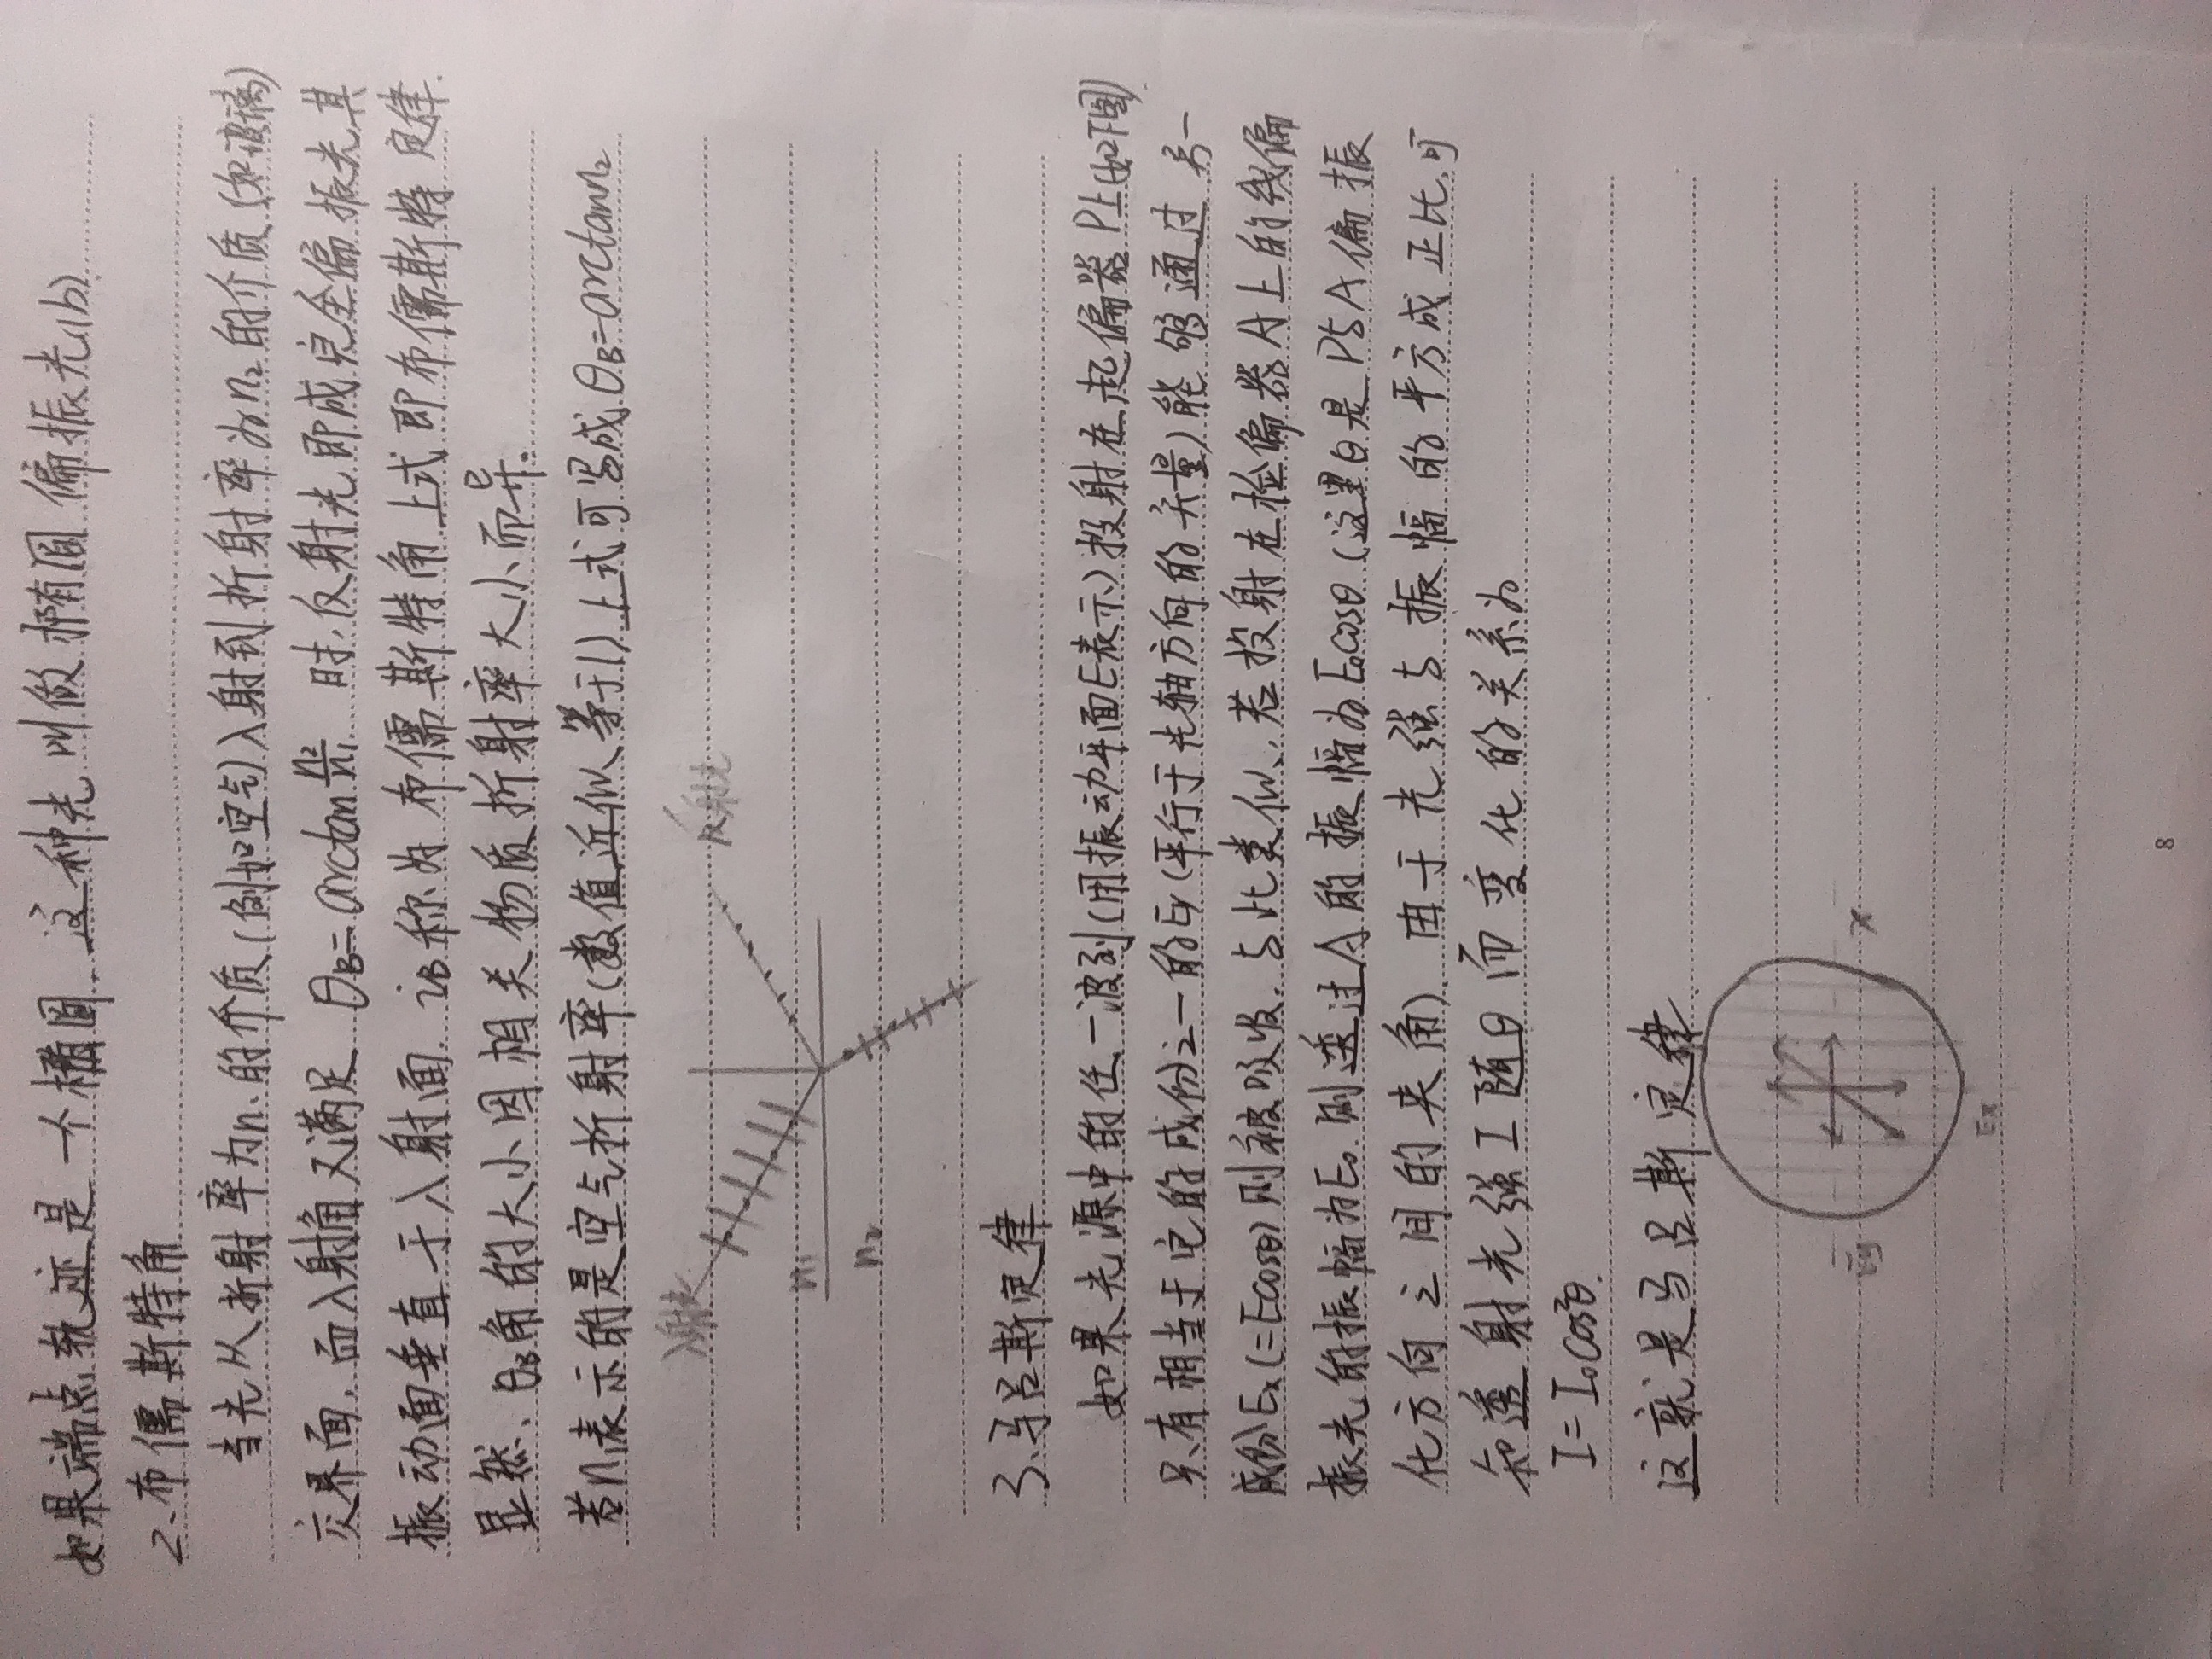 如果端点轨迹是一个椭圆,这种光叫做椭圆偏振光(b).
2、布儒斯特角
当光从折射率为n₁的介质(例如空气)入射到折射率为n₂的介质(如玻璃)
交界面,而入射角又满足 θB=arctan n₂/n₁ 时,反射光即成完全偏振光其
振动面垂直于入射面. iB称为布儒斯特角上式即布儒斯特定律.
显然、θB角的大小因相关物质折射率大小而异.
若n₁表示的是空气折射率(数值近似等于1)上式可写成θB=arctann₂
入射光
反射光
n₁
n₂
3、马吕斯定律
如果光源中的任一波列(用振动平面E表示)投射在起偏器P上(如下图)
只有相当于它的成份之一的Ey(平行于光轴方向的矢量)能够通过另一
成份Ex(=Ecosθ)则被吸收.与此类似,若投射在检偏器A上的线偏
振光的振幅为E₀.则透过A的振幅为E₀cosθ(这里θ是P与A偏振
化方向之间的夹角).由于光强与振幅的平方成正比.可
知透射光强I随θ而变化的关系为
I=I₀cos²θ.
这就是马吕斯定律.
x
Ey
Ex
8